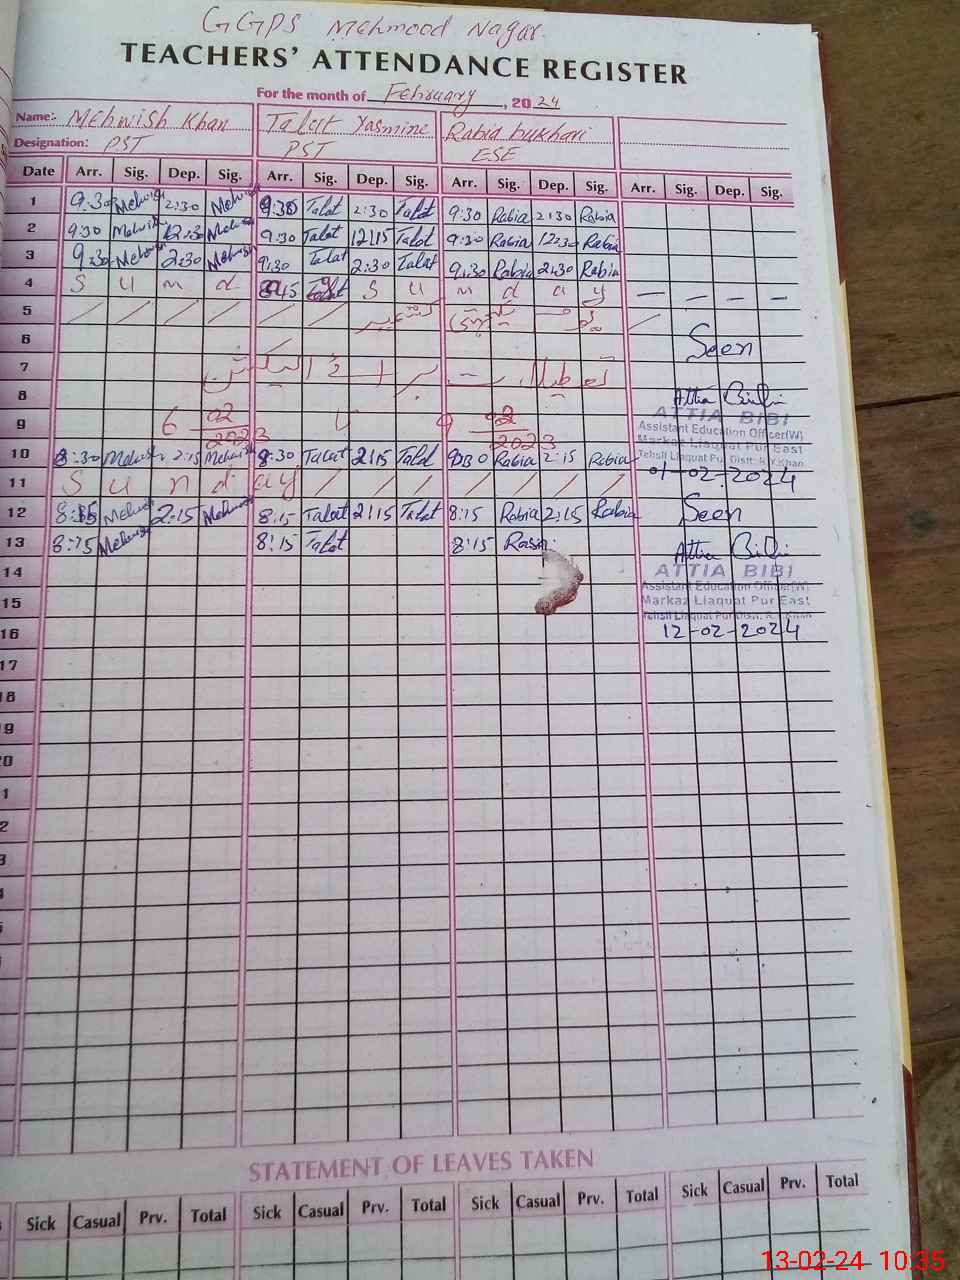 GGPS Mehmood Nagar.
TEACHERS' ATTENDANCE REGISTER
For the month of February, 2024
Name: Mehwish Khan Talat Yasmine Rabia bukhari
Designation: PST PST ESE
Date Arr. Sig. Dep. Sig. Arr. Sig. Dep. Sig. Arr. Sig. Dep. Sig. Arr. Sig. Dep. Sig.
1 9:30 Mehwish 2:30 Mehwish 9:30 Talat 2:30 Talat 9:30 Rabia 2:30 Rabia
2 9:30 Mehwish 12:30 Mehwish 9:30 Talat 12:15 Talat 9:30 Rabia 12:30 Rabia
3 9:30 Mehwish 2:30 Mehwish 9:30 Talat 2:30 Talat 9:30 Rabia 2:30 Rabia
4 S u n d 8:45 Talat S u n d a y — — — —
5
6 Seen
7
8 Attia Bibi
ATTIA BIBI
9 6 02/2023 9 02/2023
Assistant Education Officer(W)
Markaz Liaquat Pur East
Tehsil Liaquat Pur Distt: R.Y.Khan
10 8:30 Mehwish 2:15 Mehwish 8:30 Talat 2:15 Talat Rabia 2:15 Rabia
01-02-2024
11 S u n d a y
12 8:15 Mehwish 2:15 Mehwish 8:15 Talat 2:15 Talat 8:15 Rabia 2:15 Rabia Seen
13 8:15 Mehwish 8:15 Talat 8:15 Rabia Attia Bibi
14 ATTIA BIBI
Assistant Education Officer(W)
15 Markaz Liaquat Pur East
Tehsil Liaquat Pur Distt: R.Y.Khan
16 12-02-2024
17
18
19
20
1
2
3
STATEMENT OF LEAVES TAKEN
Sick Casual Prv. Total Sick Casual Prv. Total Sick Casual Prv. Total Sick Casual Prv. Total
13-02-24 10:35